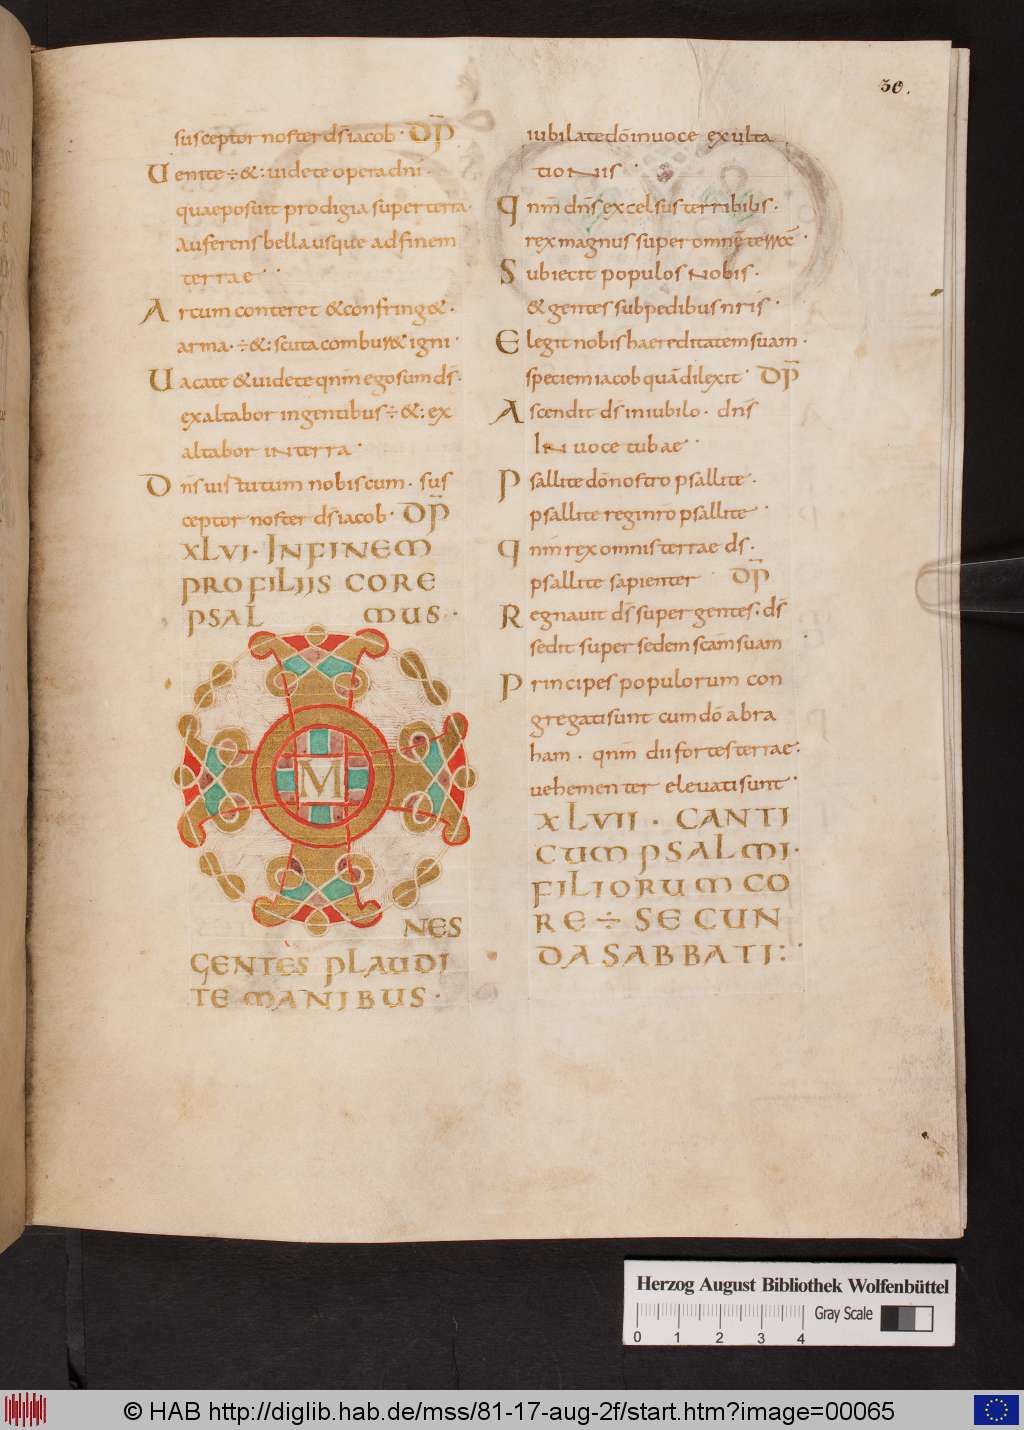 30.
susceptor noster dr̄ iacob · DP̄
Uenite ÷ &: uidete opera dnī ·
quae posuit prodigia super terra ·
auferens bella usque ad finem
terrae · ·
Arcum conteret & confring& ·
arma · ÷ &: scuta combur& igni ·
Uacate & uidete qnm̄ ego sum ds̄ ·
exaltabor in gentibus ÷ &: ex
altabor in terra ·
Dn̄s uirtutum nobiscum · sus
ceptor noster ds̄ iacob · DP̄
XLVI · IN FINEM
PRO FILIIS CORE
PSALMUS ·
OMNES
GENTES PLAUDI
TE MANIBUS ·
iubilate dō in uoce exulta
tionis ·
Qnm̄ dn̄s excelsus terribilis ·
rex magnus super omnē terrā ·
Subiecit populos nobis ·
& gentes sub pedibus nr̄is ·
Elegit nobis haereditatem suam ·
speciem iacob quā dilexit · DP̄
Ascendit ds̄ in iubilo · dn̄s
in uoce tubae ·
Psallite dō nostro psallite ·
psallite regi nro psallite ·
Qnm̄ rex omnis terrae ds̄ ·
psallite sapienter DP̄
Regnauit ds̄ super gentes : ds̄
sedit super sedem scam̄ suam ·
Principes populorum con
gregati sunt cum dō abra
ham · qnm̄ dii fortes terrae :
uehementer eleuati sunt ·
XLVII · CANTI
CUM PSALMI ·
FILIORUM CO
RE ÷ SECUN
DA SABBATI : ·
Herzog August Bibliothek Wolfenbüttel
Gray Scale
0 1 2 3 4
© HAB http://diglib.hab.de/mss/81-17-aug-2f/start.htm?image=00065